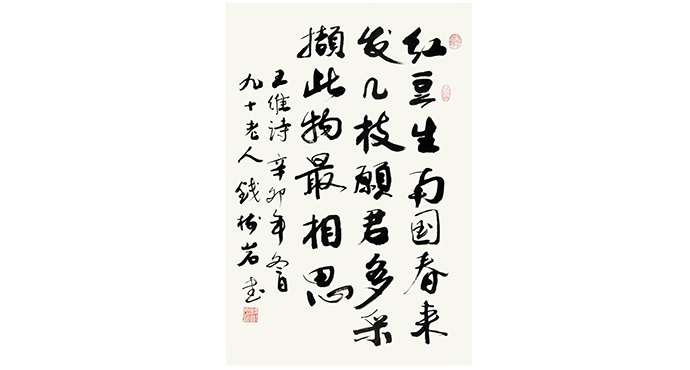 红豆生南国春来
发几枝願君多采
擷此物最相思
王维诗辛卯年冬日
九十老人錢树岩书